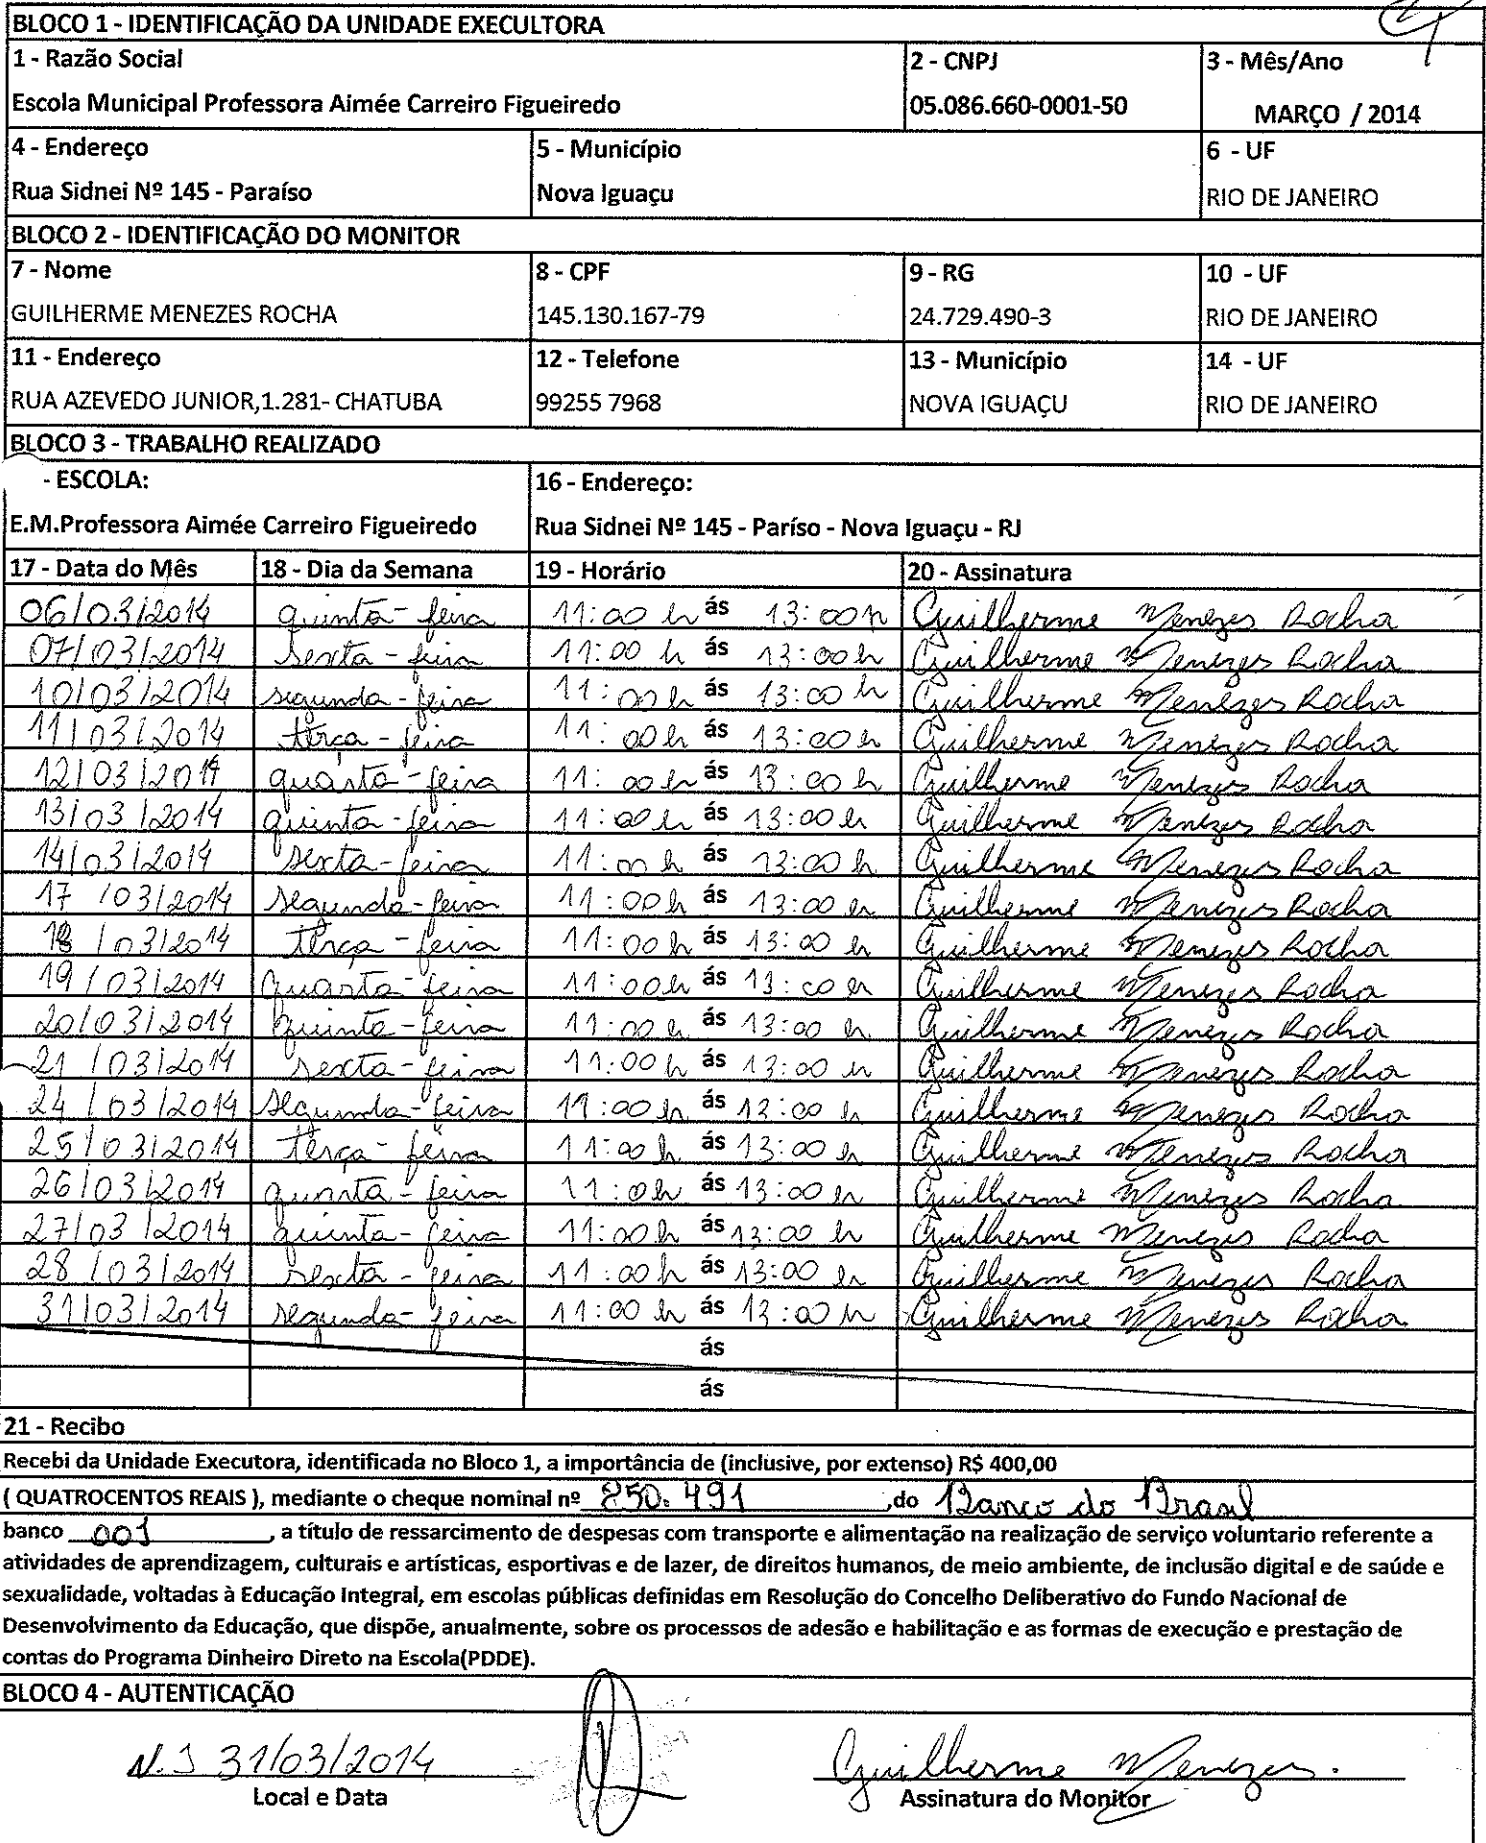 BLOCO 1 - IDENTIFICAÇÃO DA UNIDADE EXECULTORA
1 - Razão Social 2 - CNPJ 3 - Mês/Ano
Escola Municipal Professora Aimée Carreiro Figueiredo 05.086.660-0001-50 MARÇO / 2014
4 - Endereço 5 - Município 6 - UF
Rua Sidnei Nº 145 - Paraíso Nova Iguaçu RIO DE JANEIRO
BLOCO 2 - IDENTIFICAÇÃO DO MONITOR
7 - Nome 8 - CPF 9 - RG 10 - UF
GUILHERME MENEZES ROCHA 145.130.167-79 24.729.490-3 RIO DE JANEIRO
11 - Endereço 12 - Telefone 13 - Município 14 - UF
RUA AZEVEDO JUNIOR,1.281- CHATUBA 99255 7968 NOVA IGUAÇU RIO DE JANEIRO
BLOCO 3 - TRABALHO REALIZADO
- ESCOLA: 16 - Endereço:
E.M.Professora Aimée Carreiro Figueiredo Rua Sidnei Nº 145 - Paríso - Nova Iguaçu - RJ
17 - Data do Mês 18 - Dia da Semana 19 - Horário 20 - Assinatura
06/03/2014 quinta-feira 11:00 h ás 13:00 h Guilherme Menezes Rocha
07/03/2014 sexta-feira 11:00 h ás 13:00 h Guilherme Menezes Rocha
10/03/2014 segunda-feira 11:00 h ás 13:00 h Guilherme Menezes Rocha
11/03/2014 terça-feira 11:00 h ás 13:00 h Guilherme Menezes Rocha
12/03/2014 quarta-feira 11:00 h ás 13:00 h Guilherme Menezes Rocha
13/03/2014 quinta-feira 11:00 h ás 13:00 h Guilherme Menezes Rocha
14/03/2014 sexta-feira 11:00 h ás 13:00 h Guilherme Menezes Rocha
17/03/2014 segunda-feira 11:00 h ás 13:00 h Guilherme Menezes Rocha
18/03/2014 terça-feira 11:00 h ás 13:00 h Guilherme Menezes Rocha
19/03/2014 quarta-feira 11:00 h ás 13:00 h Guilherme Menezes Rocha
20/03/2014 quinta-feira 11:00 h ás 13:00 h Guilherme Menezes Rocha
21/03/2014 sexta-feira 11:00 h ás 13:00 h Guilherme Menezes Rocha
24/03/2014 segunda-feira 11:00 h ás 13:00 h Guilherme Menezes Rocha
25/03/2014 terça-feira 11:00 h ás 13:00 h Guilherme Menezes Rocha
26/03/2014 quarta-feira 11:0h ás 13:00 h Guilherme Menezes Rocha
27/03/2014 quinta-feira 11:00 h ás 13:00 h Guilherme Menezes Rocha
28/03/2014 sexta-feira 11:00 h ás 13:00 h Guilherme Menezes Rocha
31/03/2014 segunda-feira 11:00 h ás 13:00 h Guilherme Menezes Rocha
ás
ás
21 - Recibo
Recebi da Unidade Executora, identificada no Bloco 1, a importância de (inclusive, por extenso) R$ 400,00
( QUATROCENTOS REAIS ), mediante o cheque nominal nº 850.491 ,do Banco do Brasil
banco 001 , a título de ressarcimento de despesas com transporte e alimentação na realização de serviço voluntario referente a
atividades de aprendizagem, culturais e artísticas, esportivas e de lazer, de direitos humanos, de meio ambiente, de inclusão digital e de saúde e
sexualidade, voltadas à Educação Integral, em escolas públicas definidas em Resolução do Concelho Deliberativo do Fundo Nacional de
Desenvolvimento da Educação, que dispõe, anualmente, sobre os processos de adesão e habilitação e as formas de execução e prestação de
contas do Programa Dinheiro Direto na Escola(PDDE).
BLOCO 4 - AUTENTICAÇÃO
N.I 31/03/2014 Guilherme Menezes.
Local e Data Assinatura do Monitor